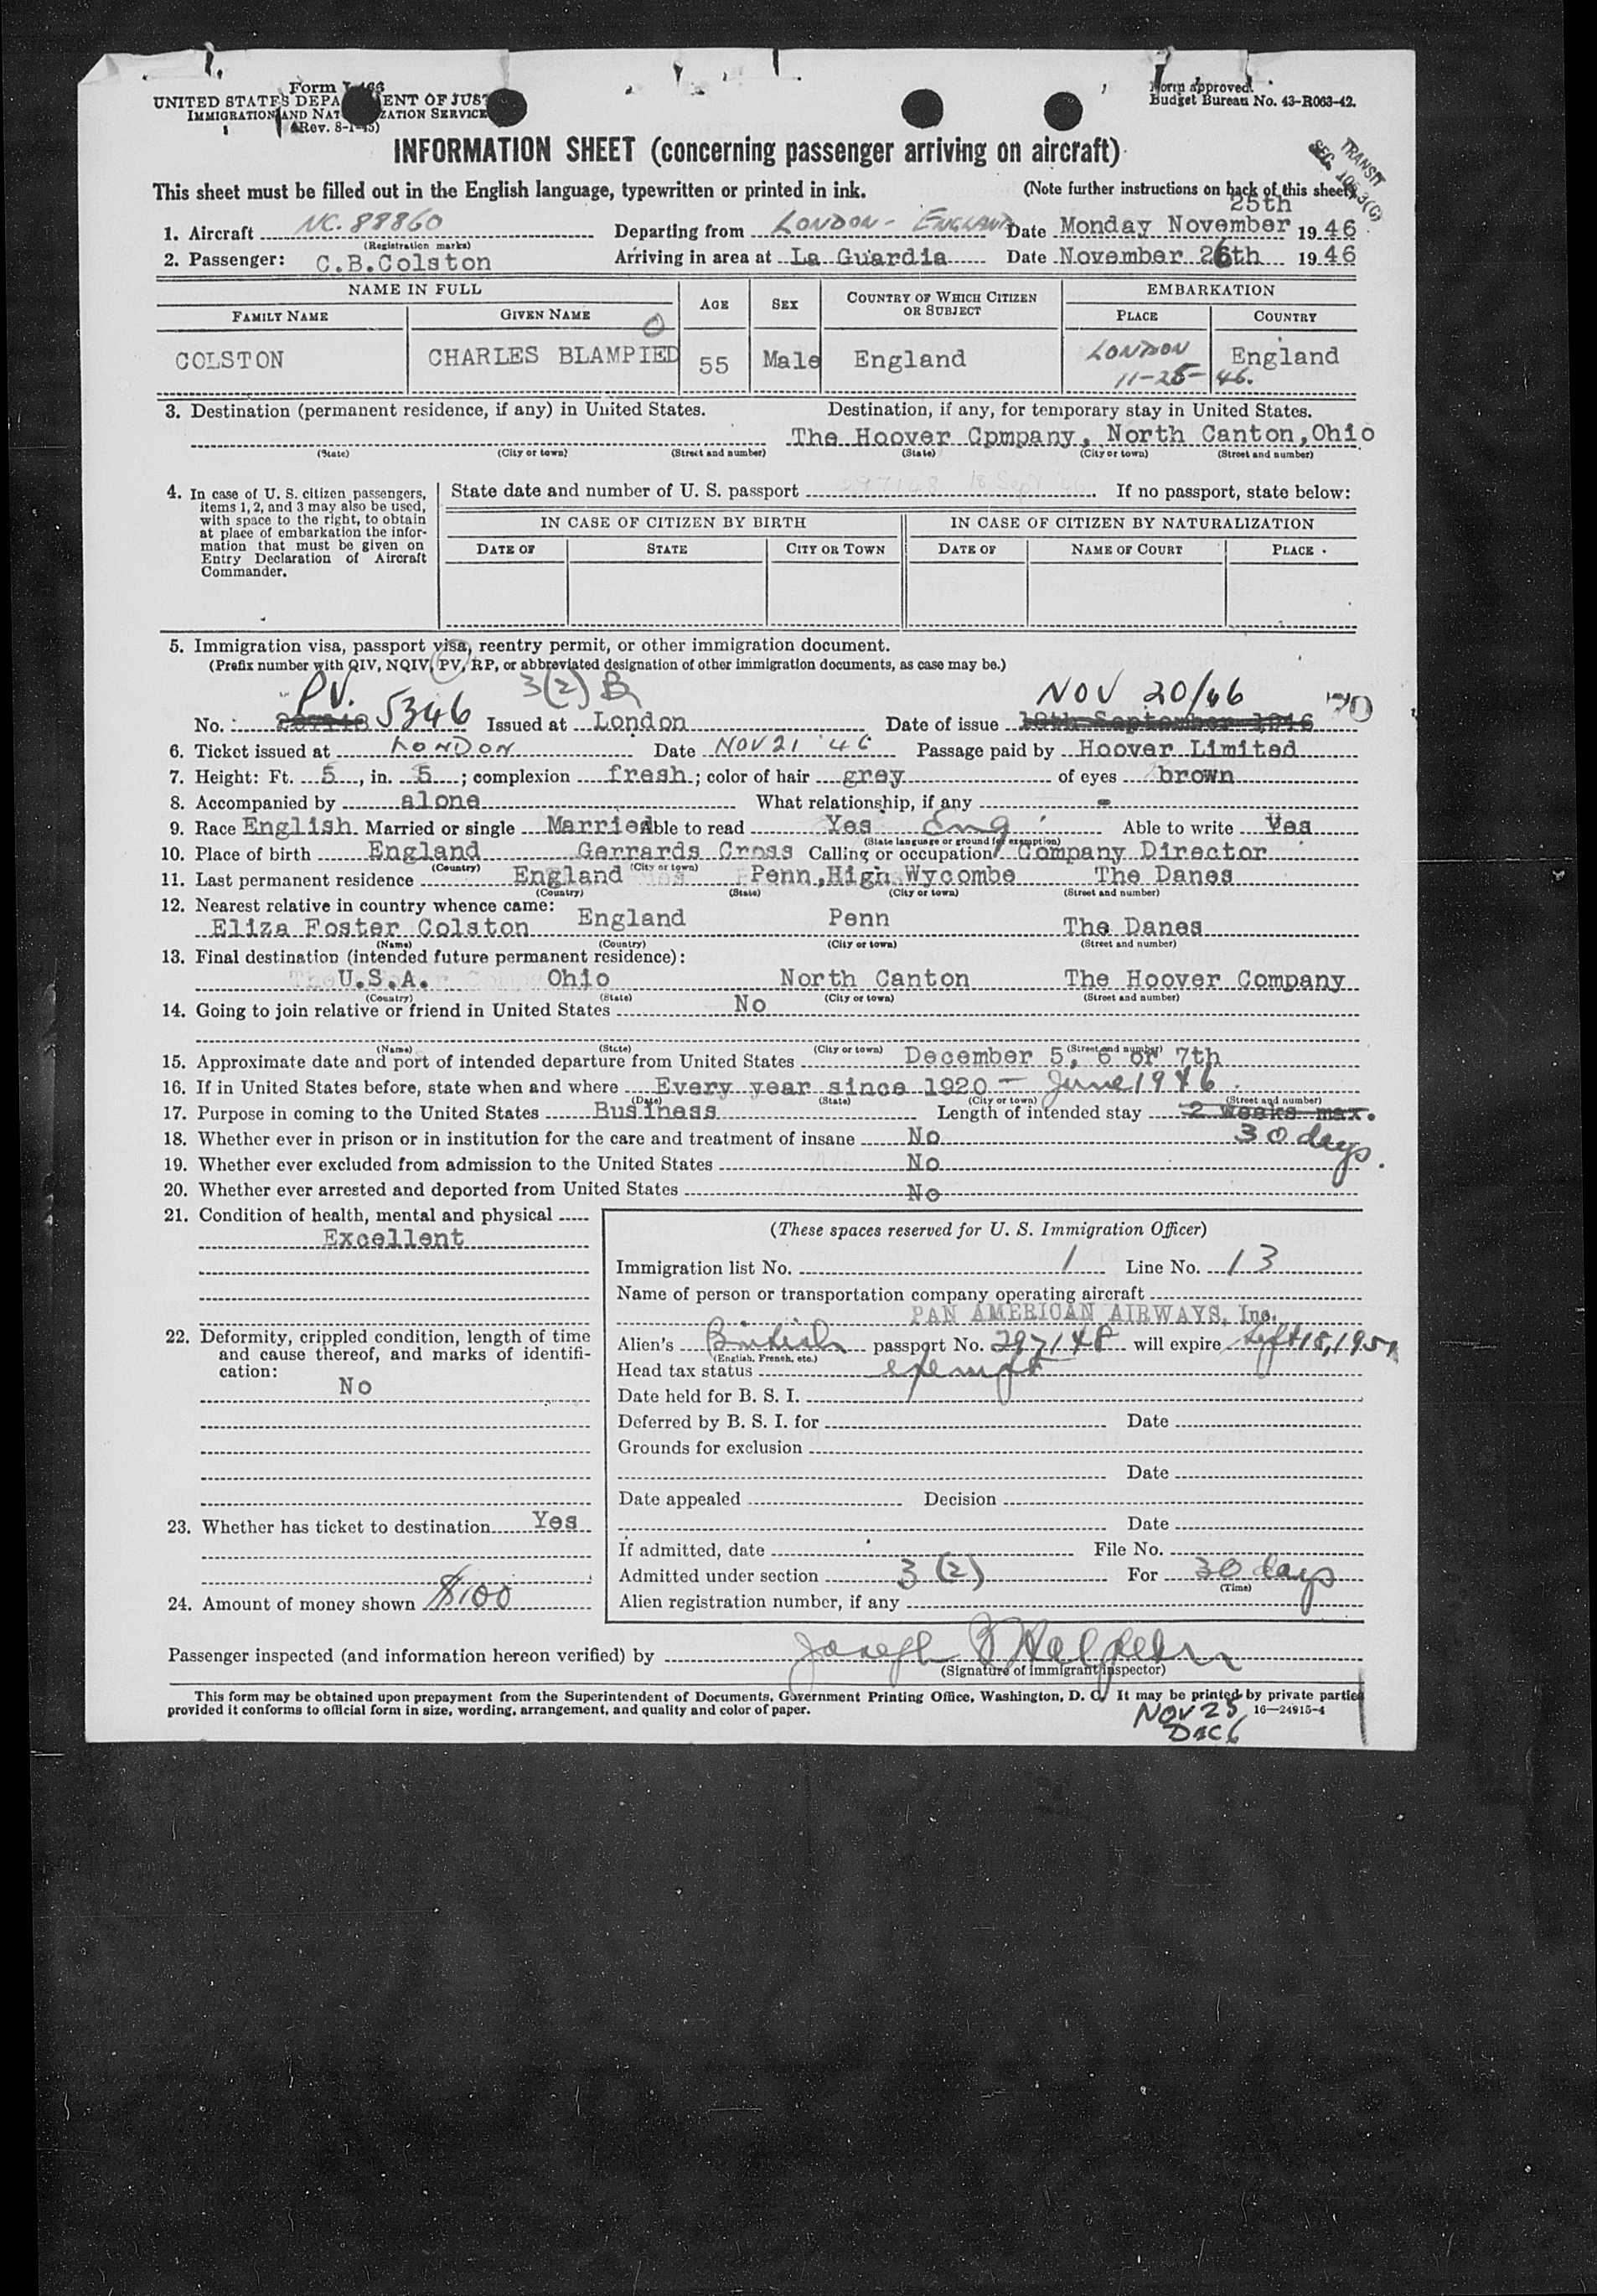 Form I-466
UNITED STATES DEPARTMENT OF JUSTICE
IMMIGRATION AND NATURALIZATION SERVICE
(Rev. 8-1-45)
Form approved.
Budget Bureau No. 43-R063-42.
TRANSIT
SEC. 105.3(C)
INFORMATION SHEET (concerning passenger arriving on aircraft)
This sheet must be filled out in the English language, typewritten or printed in ink. (Note further instructions on back of this sheet)
25th
1. Aircraft NC. 88860 Departing from LONDON - ENGLAND Date Monday November 1946
(Registration marks)
2. Passenger: C.B.Colston Arriving in area at La Guardia Date November 26th 1946
NAME IN FULL AGE SEX COUNTRY OF WHICH CITIZEN OR SUBJECT EMBARKATION
FAMILY NAME GIVEN NAME PLACE COUNTRY
COLSTON CHARLES BLAMPIED 55 Male England LONDON England
11-25-46.
3. Destination (permanent residence, if any) in United States. Destination, if any, for temporary stay in United States.
The Hoover Cpmpany, North Canton,Ohio
(State) (City or town) (Street and number) (State) (City or town) (Street and number)
4. In case of U. S. citizen passengers, items 1, 2, and 3 may also be used, with space to the right, to obtain at place of embarkation the information that must be given on Entry Declaration of Aircraft Commander.
State date and number of U. S. passport 297148 18 Sept 46. If no passport, state below:
IN CASE OF CITIZEN BY BIRTH IN CASE OF CITIZEN BY NATURALIZATION
DATE OF STATE CITY OR TOWN DATE OF NAME OF COURT PLACE
5. Immigration visa, passport visa, reentry permit, or other immigration document.
(Prefix number with QIV, NQIV, PV, RP, or abbreviated designation of other immigration documents, as case may be.)
PV. 3(2) B NOV 20/46
No. 297148 5346 Issued at London Date of issue 18th September 1946
6. Ticket issued at LONDON Date NOV 21 '46 Passage paid by Hoover Limited
7. Height: Ft. 5, in. 5; complexion fresh; color of hair grey of eyes brown
8. Accompanied by alone What relationship, if any -
9. Race English Married or single Married Able to read Yes Eng Able to write Yes
(State language or ground for exemption)
10. Place of birth England Gerrards Cross Calling or occupation Company Director
(Country) (City or town)
11. Last permanent residence England Penn,High Wycombe The Danes
(Country) (State) (City or town) (Street and number)
12. Nearest relative in country whence came:
Eliza Foster Colston England Penn The Danes
(Name) (Country) (City or town) (Street and number)
13. Final destination (intended future permanent residence):
U.S.A. Ohio North Canton The Hoover Company
(Country) (State) (City or town) (Street and number)
14. Going to join relative or friend in United States No
(Name) (State) (City or town) (Street and number)
15. Approximate date and port of intended departure from United States December 5, 6 or 7th
16. If in United States before, state when and where Every year since 1920 - June 1946
(Date) (State) (City or town) (Street and number)
17. Purpose in coming to the United States Business Length of intended stay 2 weeks max.
30 days.
18. Whether ever in prison or in institution for the care and treatment of insane No
19. Whether ever excluded from admission to the United States No
20. Whether ever arrested and deported from United States No
21. Condition of health, mental and physical
Excellent
22. Deformity, crippled condition, length of time and cause thereof, and marks of identification:
No
23. Whether has ticket to destination Yes
24. Amount of money shown $100
(These spaces reserved for U. S. Immigration Officer)
Immigration list No. 1 Line No. 13
Name of person or transportation company operating aircraft
PAN AMERICAN AIRWAYS, Inc.
Alien's British passport No. 297148 will expire Sept 18, 1951
(English, French, etc.)
Head tax status exempt
Date held for B. S. I.
Deferred by B. S. I. for Date
Grounds for exclusion
Date
Date appealed Decision
Date
If admitted, date File No.
Admitted under section 3(2) For 30 days
(Time)
Alien registration number, if any
Passenger inspected (and information hereon verified) by Joseph B Halpern
(Signature of immigrant inspector)
This form may be obtained upon prepayment from the Superintendent of Documents, Government Printing Office, Washington, D. C. It may be printed by private parties
provided it conforms to official form in size, wording, arrangement, and quality and color of paper. 16—24915-4
NOV 25
DEC 6